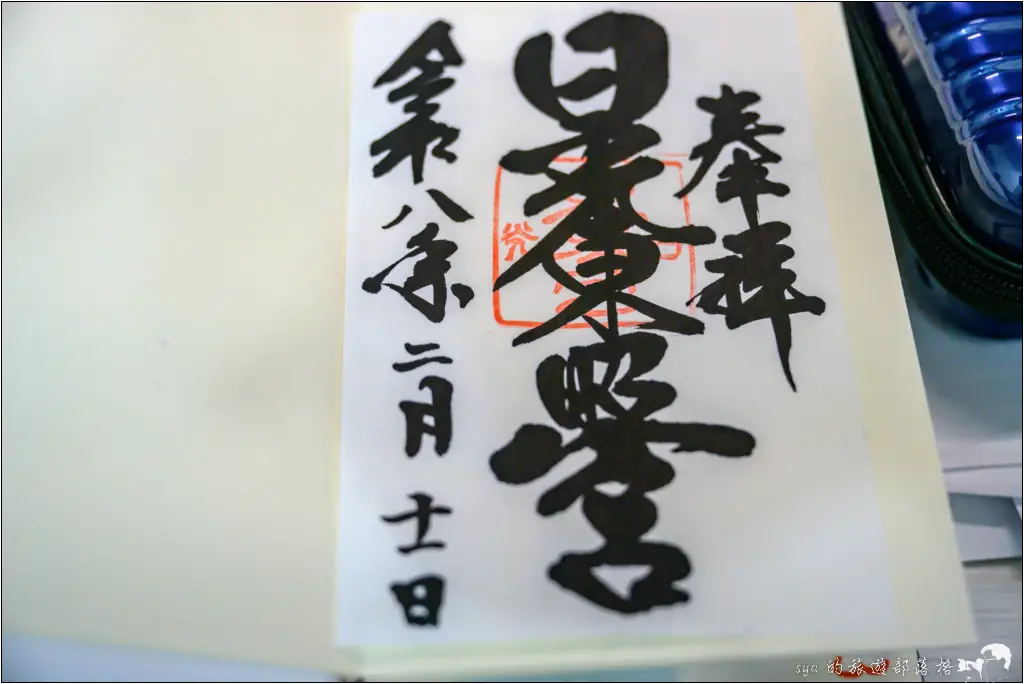 奉拝
日光東照宮
令和八年二月十一日
sya 的旅遊部落格